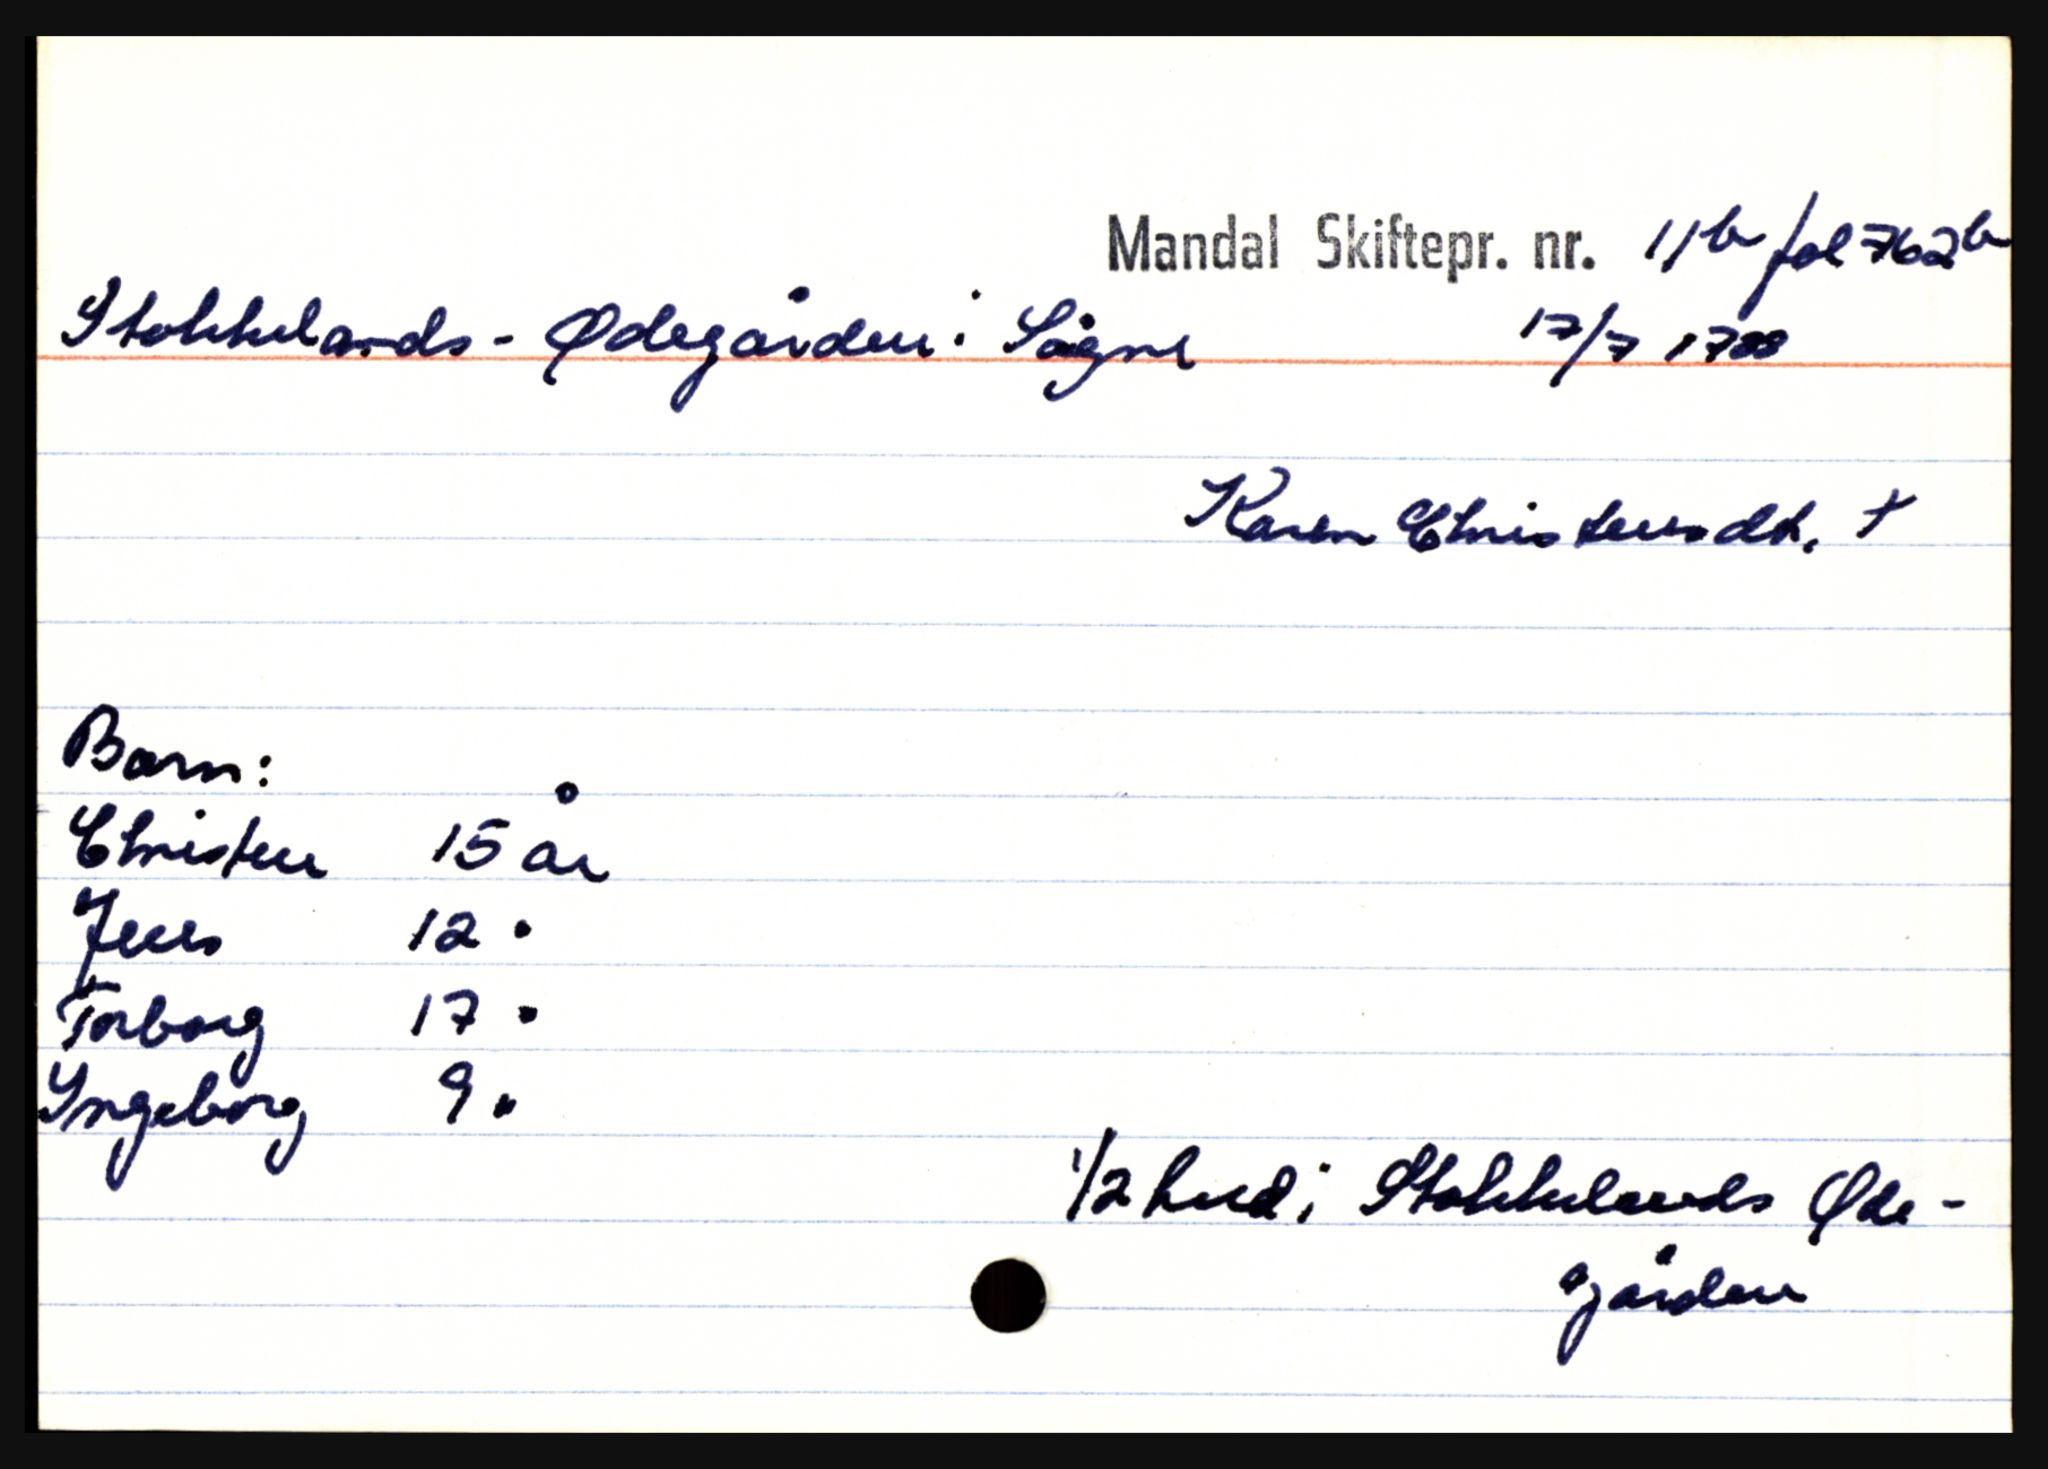 Mandal Skiftepr. nr. 11b fol 762b
Stokkelands-Ødegården i Søgne 17/7 1788
Karen Christensdt. †
Barn:
Christen 15 år
Jens 12 "
Torborg 17 "
Ingeborg 9 "
1/2 hud i Stokkelands Øde-
gården